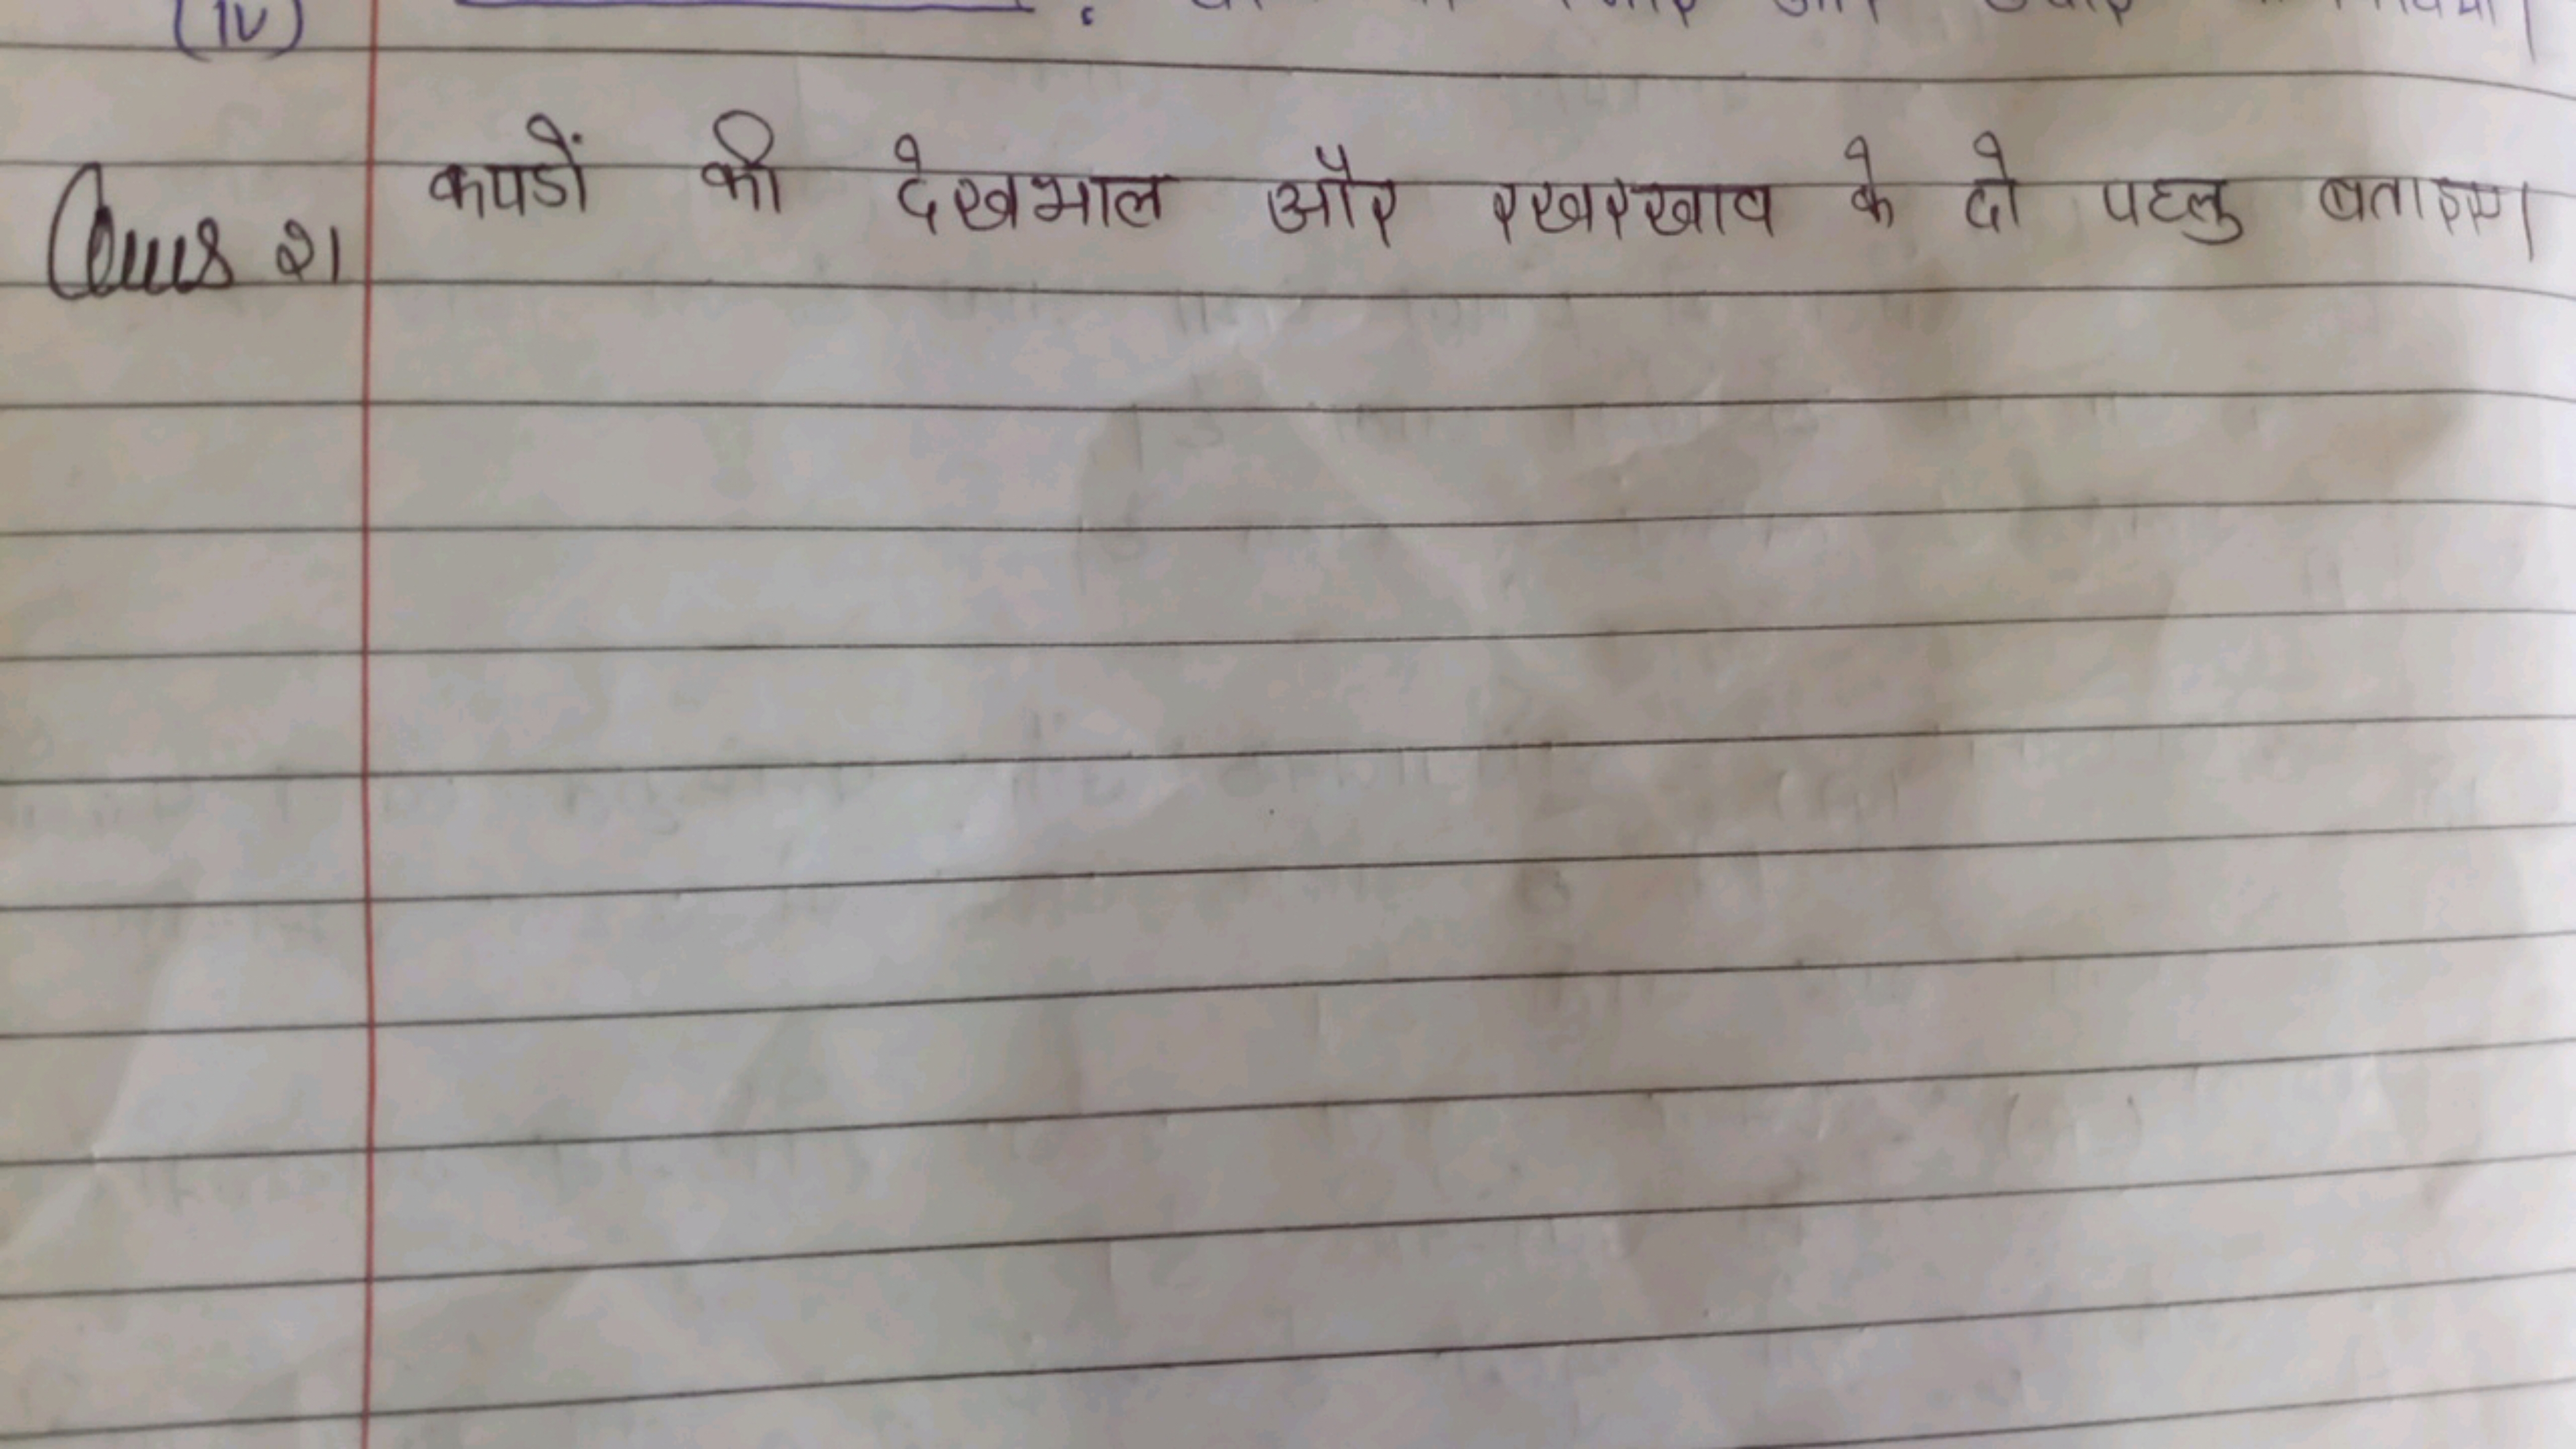 (iv)
Ques 21 कपडों की देखभाल और रखरखाव के दो पहलु बताइए।